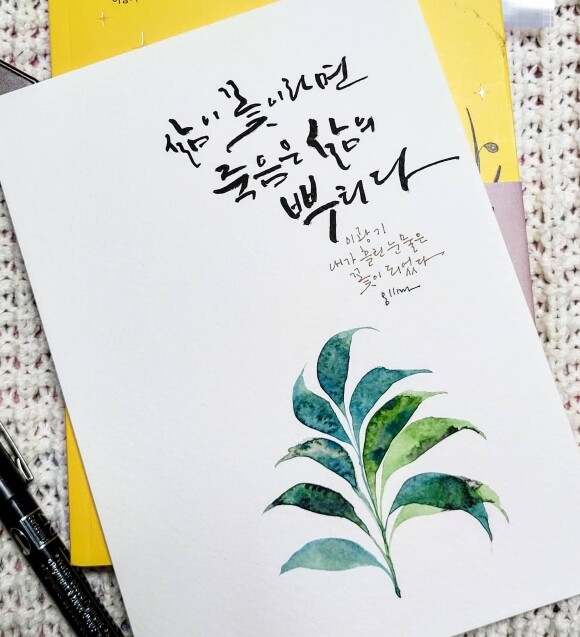 삶이 꽃이라면
죽음은 삶의
뿌리다
이광기
내가 흘린 눈물은
꽃이 되었다